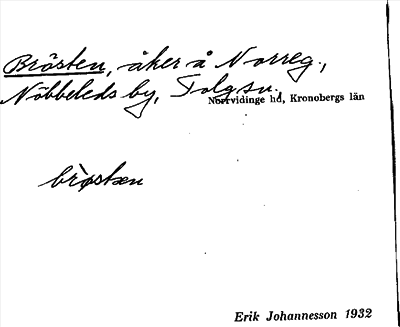 Brösten, åker å Norreg.,
Nöbbeleds by, Tolg sn.,
Norrvidinge hd, Kronobergs län
brø̀stæn
Erik Johannesson 1932